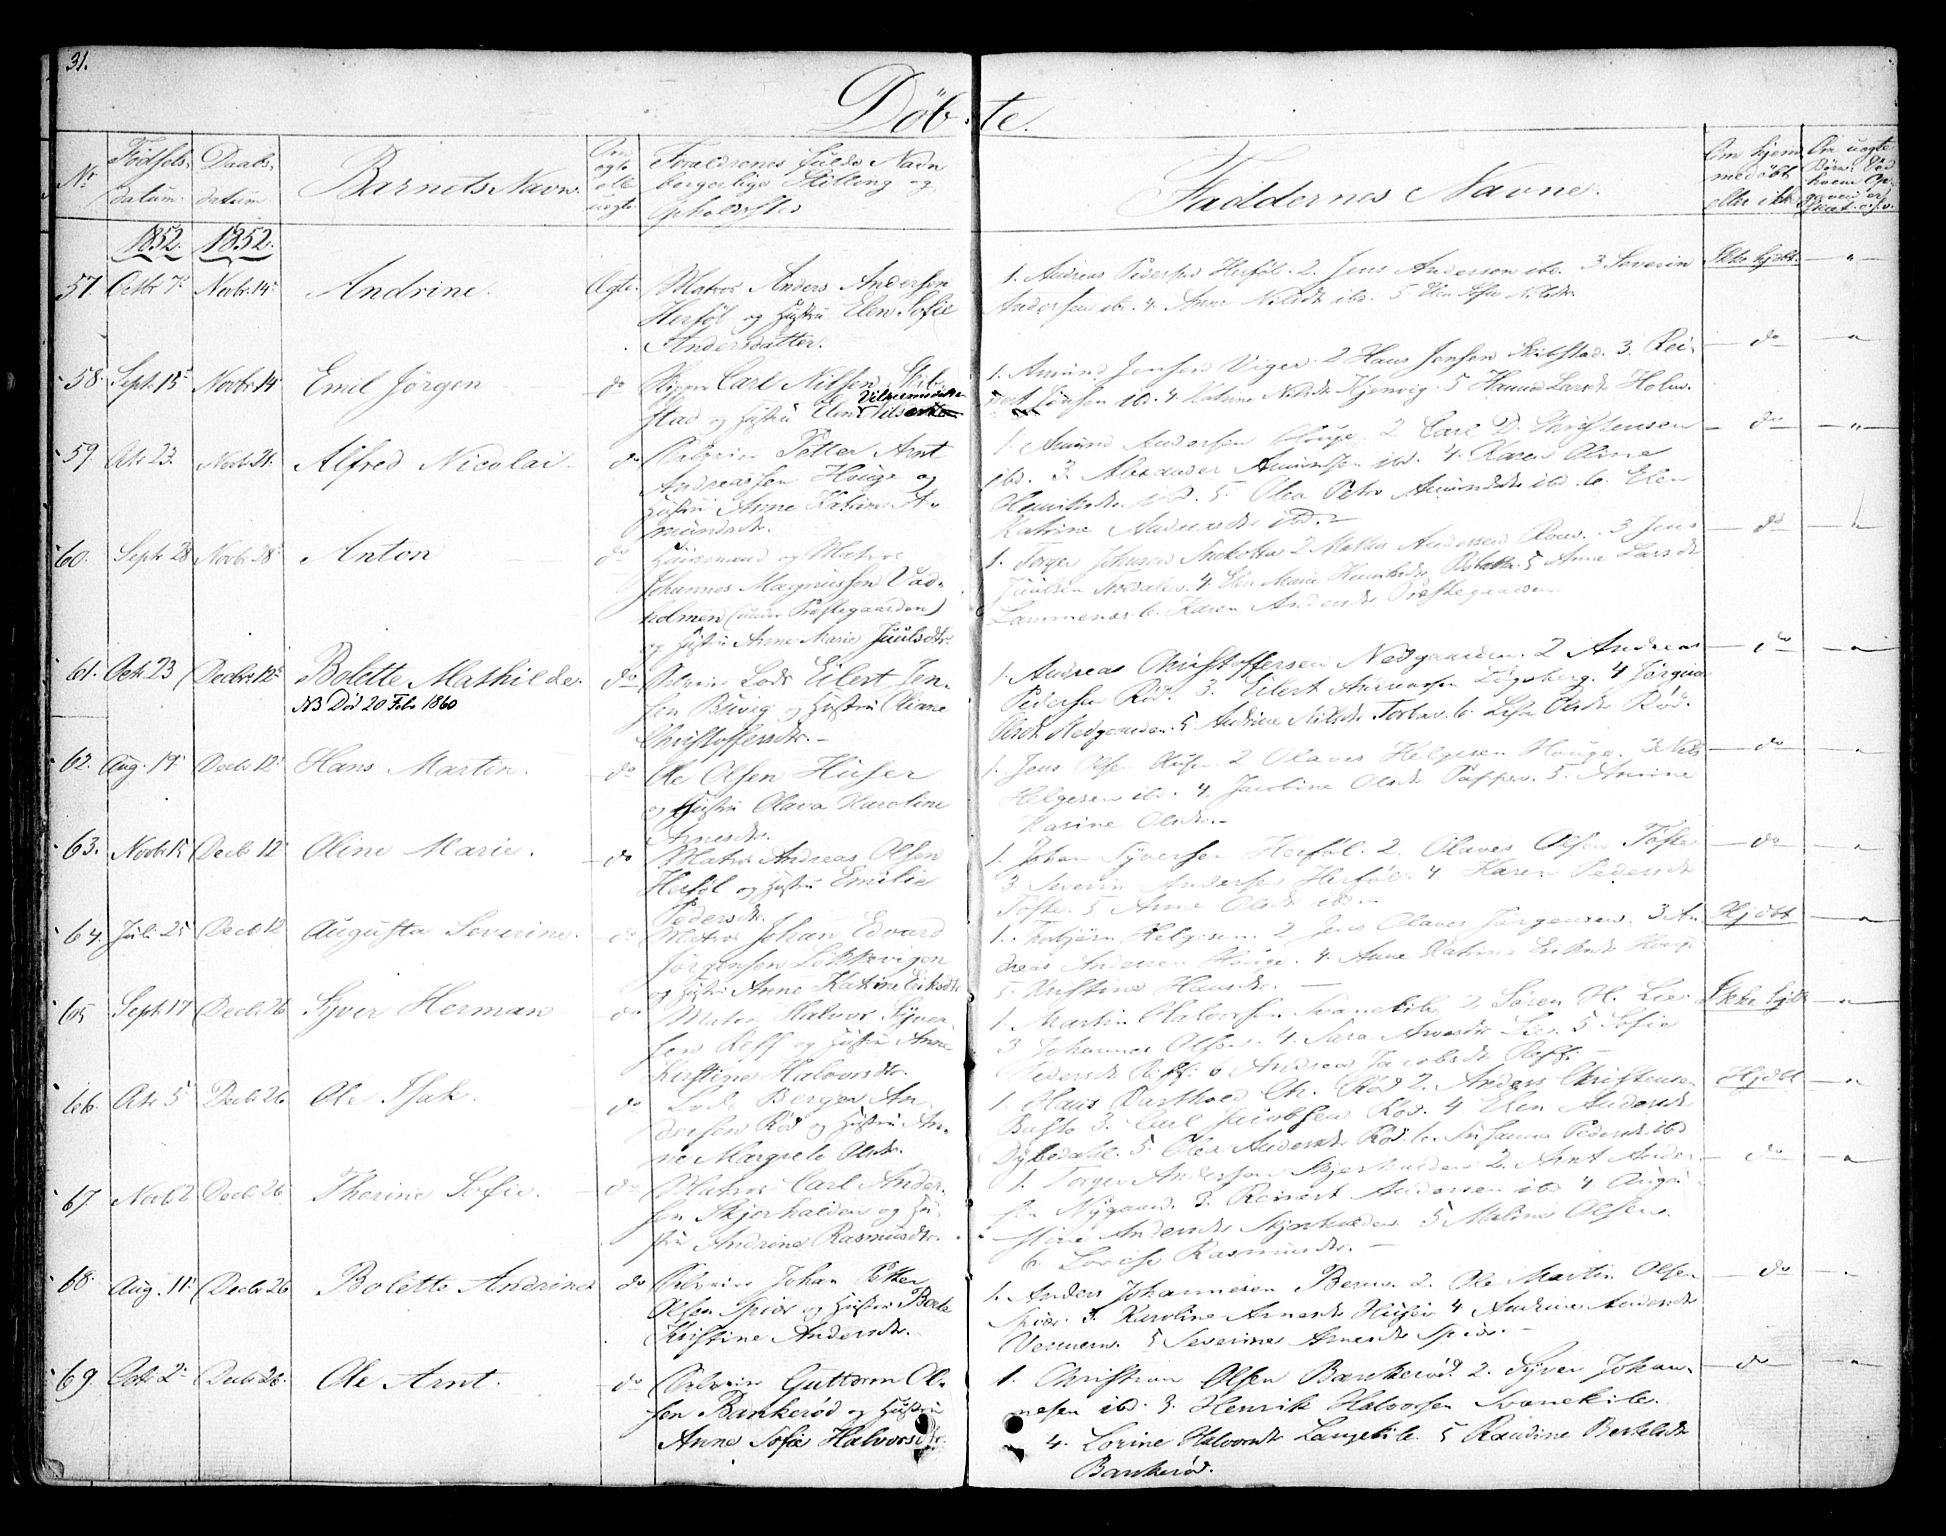 31.
Döbte.
Nr
Födsels-
datum.
Daabs-
datum
Barnets Navn.
Om
ægte
ell.
uægte
Foraldrenes fulde Navn
borgerlige Stilling og
Opholdssted
Faddernes Navne.
Om hjem
medøbt
eller ikke
1852. 1852.
57. Octbr 7d Novbr. 14d Andrine. Ægte. Matros Anders Andersen
Herföl og Hustru Elen Sofie
Andersdatter.
1. Andreas Pedersen Herföl. 2. Jens Andersen ibd. 3 Severin
Andersen ibd. 4. Anne Nilsdtr ibd. 5 Elen Sofie Nilsdtr
Ikke hjdbt. "
58. Septr. 15d Novbr. 14 Emil Jörgen do Carl Nilsen Skib-
stad og Hustru Elen
1. Amund Jensen Viger 2 Hans Jensen Skibstad. 3. Rei-
nert Jensen ibd. 4 Katrine Nilsdtr Kjenvig. 5 Hanna Larsdtr Holm.
do "
59. Octr 23. Novbr. 21. Alfred Nicolai. do Petter Arnt
Andreassen Houge og
Hustru Anne Katrine A-
mundsdtr.
1. Amund Andersen Houge. 2 Carl D. Christensen
ibd. 3. Alexander Amundsen ibd. 4. Karen Oline
Henriksdtr. ibd. 5. Olea Petra Amundsdtr ibd. 6. Elen
Katrine Andreasdtr ibd.
do "
60. Septr 28 Novbr 28d Anton do Huusmand og Matros
Johannes Magnussen Vad-
holmen (under Præstegaarden)
og Hustru Anne Marie Juulsdtr.
1. Torger Johnsen 2 Andersen 3 Jens
Juulsen 4. Elen Marie Henriksdtr 5 Anne Larsdtr
6. Karen Andersdtr Præstegaarden
do "
61. Octr. 23 Decbr. 12d Bolette Mathilde. do Lods Eilert Jen-
sen Buvig og Hustru Oliane
Christoffersdtr.
NB Död 20 Febr 1860
1. Andreas Christoffersen Nedgaarden. 2 Andreas
Pedersen Röd. 3. Eilert Andreassen Lögeberg. 4 Jörgine
Nedgaarden. 5 Andrine Nilsdtr 6. Lisa Olsdtr Röd.
do "
62. Aug. 19d Decbr 12d Hans Martin. do Ole Olsen Huser
og Hustru Olava Karoline
Arnesdtr.
1. Jens Olsen Huser. 2 Olaves Helgesen Houge. 3 Nils
Helgesen ibd. 4. Jacobine Olsdtr Papper. 5.
Karine Olsdtr.
do "
63. Novbr. 15 Decbr 12d Oline Marie. do Matros Andreas Olsen
Herföl og Hustru Emilie
Pedersdtr.
1. Johan Syversen Herföl. 2. Olaves Olsen Tofte
3 Severin Andersen Herföl. 4 Karen Pedersdtr
Tofte. 5 Anne Olsdtr ibd.
do "
64. Juli 25 Decbr 12 Augusta Severine. do Matros Johan Edvard
Jörgensen Lökkevigen
og Hustru Anne Katrine Eriksdtr
1. Torbjörn Helgesen. 2 Jens Olaves Jörgensen. 3 An-
dreas Andersen Houge. 4. Anne Katrine Eriksdtr Houge
5. Kristine Hansdtr.
Hjdbt "
65 Septr. 17 Decbr. 26 Syver Herman do Matros Halvor Syver-
sen Reff og Hustru Anne
Kirstine Halvorsdtr.
1. Martin Halvorsen Svanekile 2. Sören H. Lie
3 Johannes Olsen. 4 Sara Arnesdtr Lie. 5 Sofie
Pedersdtr Reff. 6 Andrea Jacobsdtr Reff.
Ikke hjdbt "
66. Octr 5 Decbr 26 Ole Isak. do Lods Berger An-
dersen Röd og Hustru An-
ne Margrete Olsdtr.
1. Hans Barthold Chr. Röd 2. Anders Christensen
Basto 3. Carl Jacobsen Röd. 4 Elen Andersdtr
Dybedahl. 5. Olea Andersdtr Röd. 6. Susanna Pedersdtr ibd
Hjdbt "
67. Novbr 2 Decbr 26 Therine Sofie. do Matros Carl Ander-
sen Skjerhalden og Hu-
stru Andrine Rasmusdtr.
1. Torger Andersen Skjerhalden 2. Arnt Ander-
sen Nygaard. 3. Reinert Andersen ibd 4 Augu-
stine Andersdtr Skjerhalden. 5 Maline Olsen.
6. Lovise Rasmusdtr.
do "
68. Aug. 11d Decbr 26 Bolette Andrine do Johan Petter
Olsen Spiör og Hustru Berte
Kristine Andersdtr.
1. Anders Johannesen 2. Ole Martin Olsen
Spiör. 3. Karoline Arnesdtr Huser 4 Andrine Andersdtr
5 Severine Arnesdtr Spiör.
do "
69. Octr. 2d Decbr. 26. Ole Arnt. do Guttorm Ol-
sen Bankeröd og Hustru
Anne Sofie Halvorsdtr.
1. Christian Olsen Bankeröd. 2. Syver Johan-
nesen ibd. 3. Henrik Halvorsen Svanekile.
4. Lovine Halvorsdtr Langekile. 5 Randine Bertelsdtr
Bankeröd.
do "